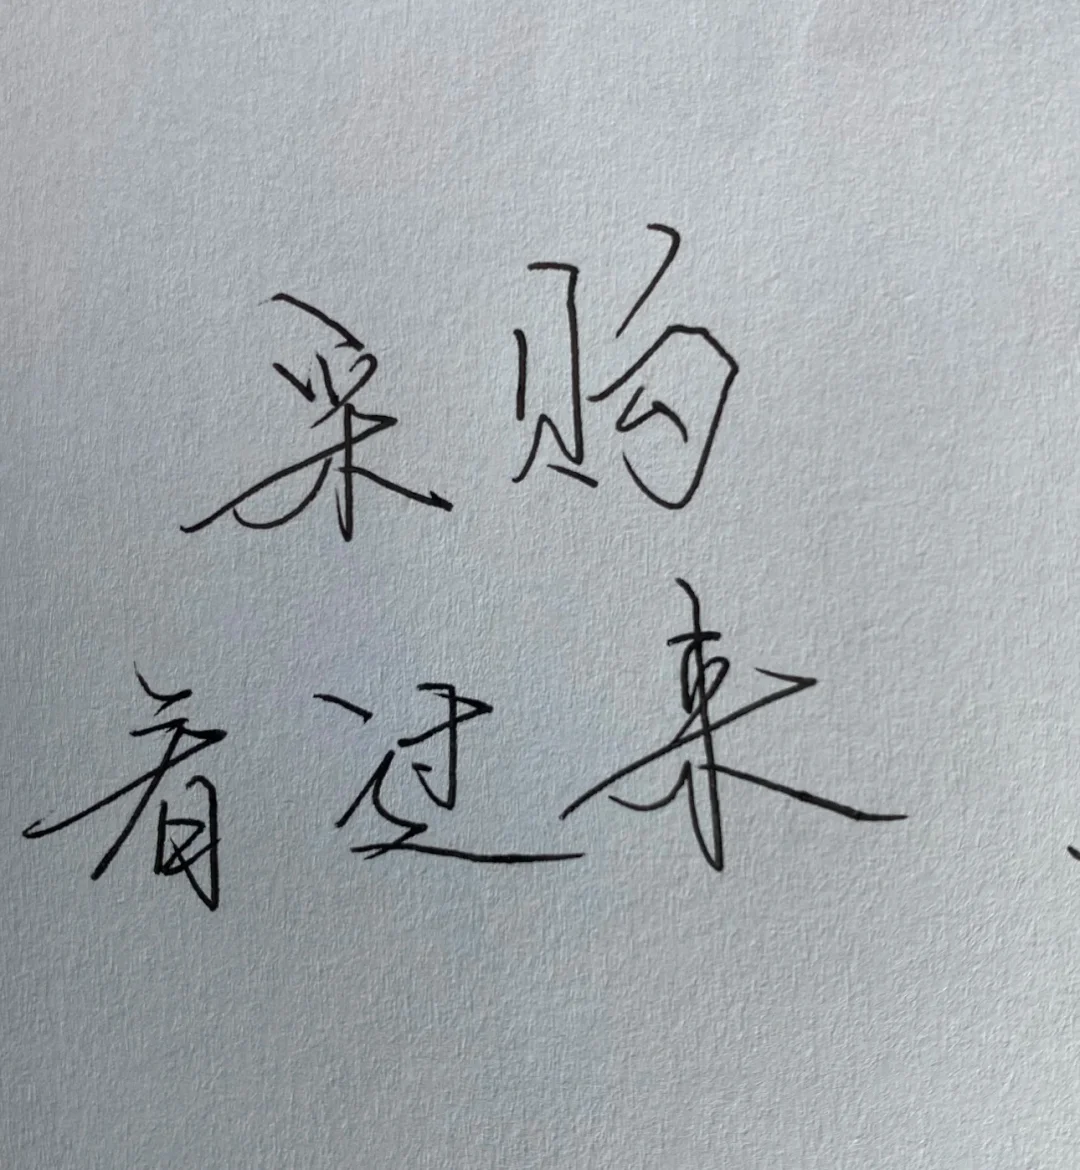 采购
着过来